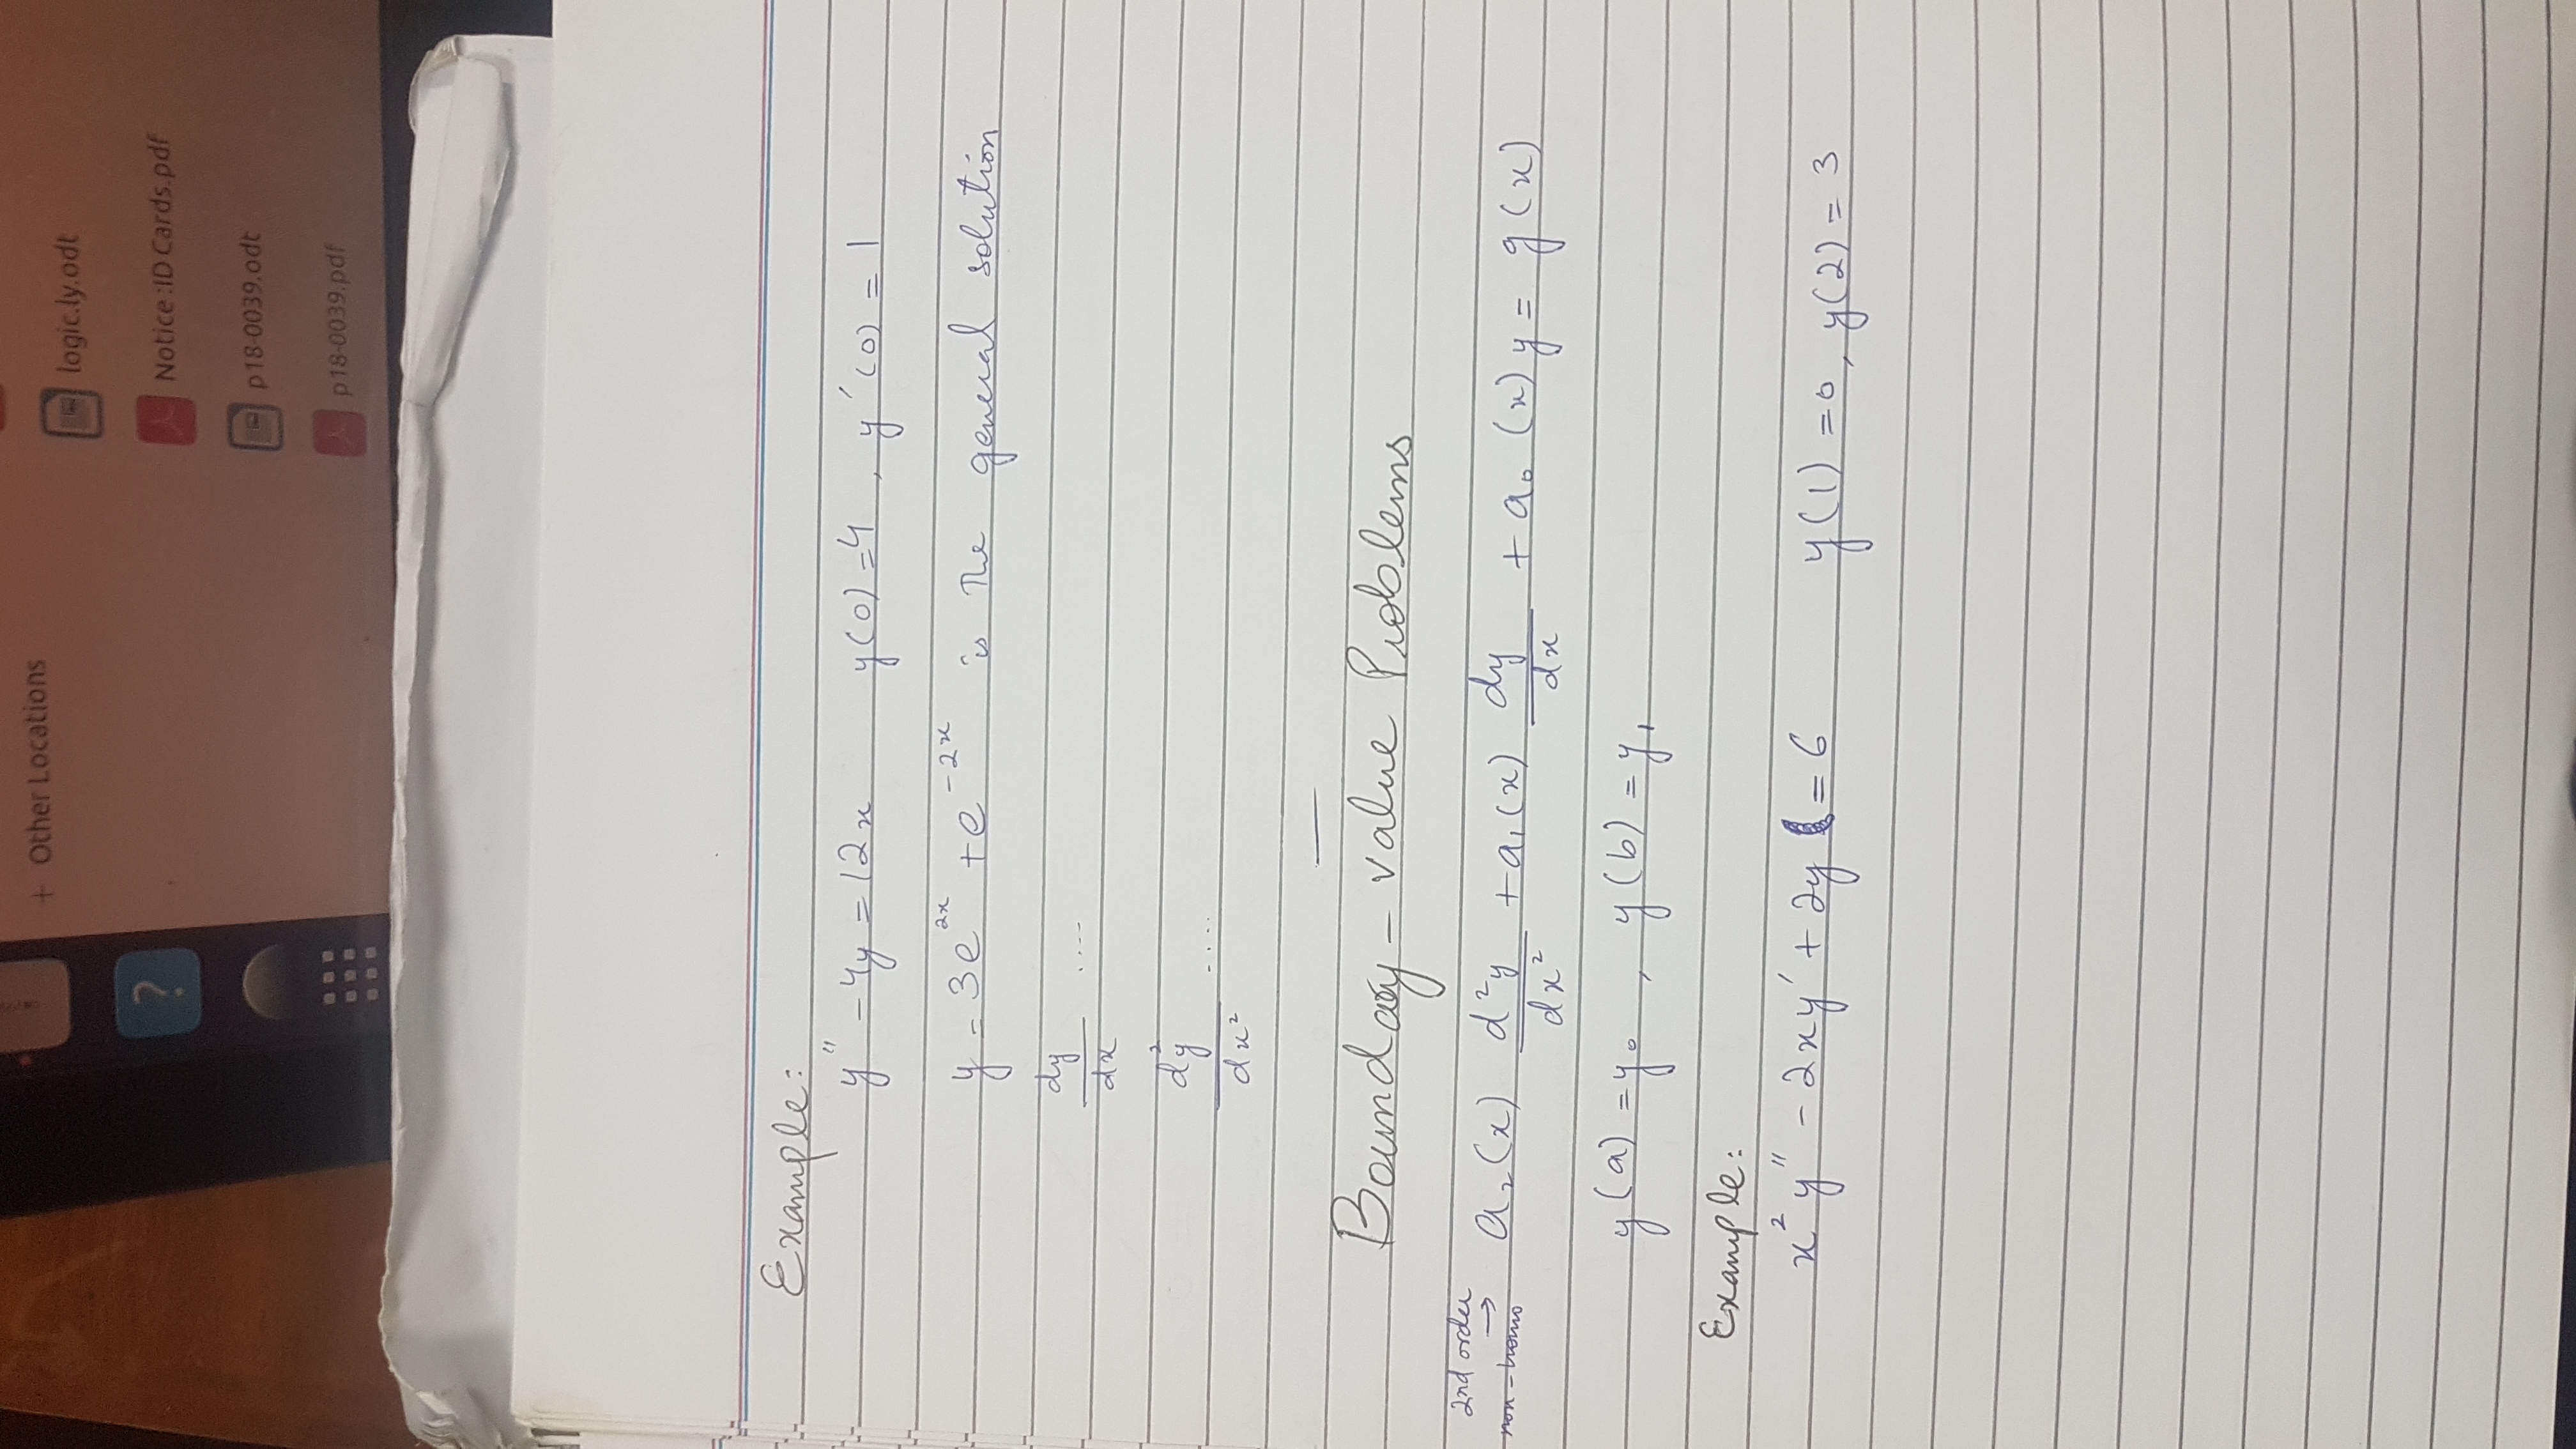 + Other Locations
logic.ly.odt
?
Notice :ID Cards.pdf
p18-0039.odt
p18-0039.pdf
Example:
y'' - 4y = 12x y(0) = 4, y'(0) = 1
y = 3e^{2x} + e^{-2x} is the general solution
dy/dx ....
d²y/dx² ....
Boundary - value Problems
2nd order → non-homo a₂(x) d²y/dx² + a₁(x) dy/dx + a₀(x)y = g(x)
y(a) = y₀, y(b) = y₁
Example:
x²y'' - 2xy' + 2y = 6 y(1) = 0, y(2) = 3